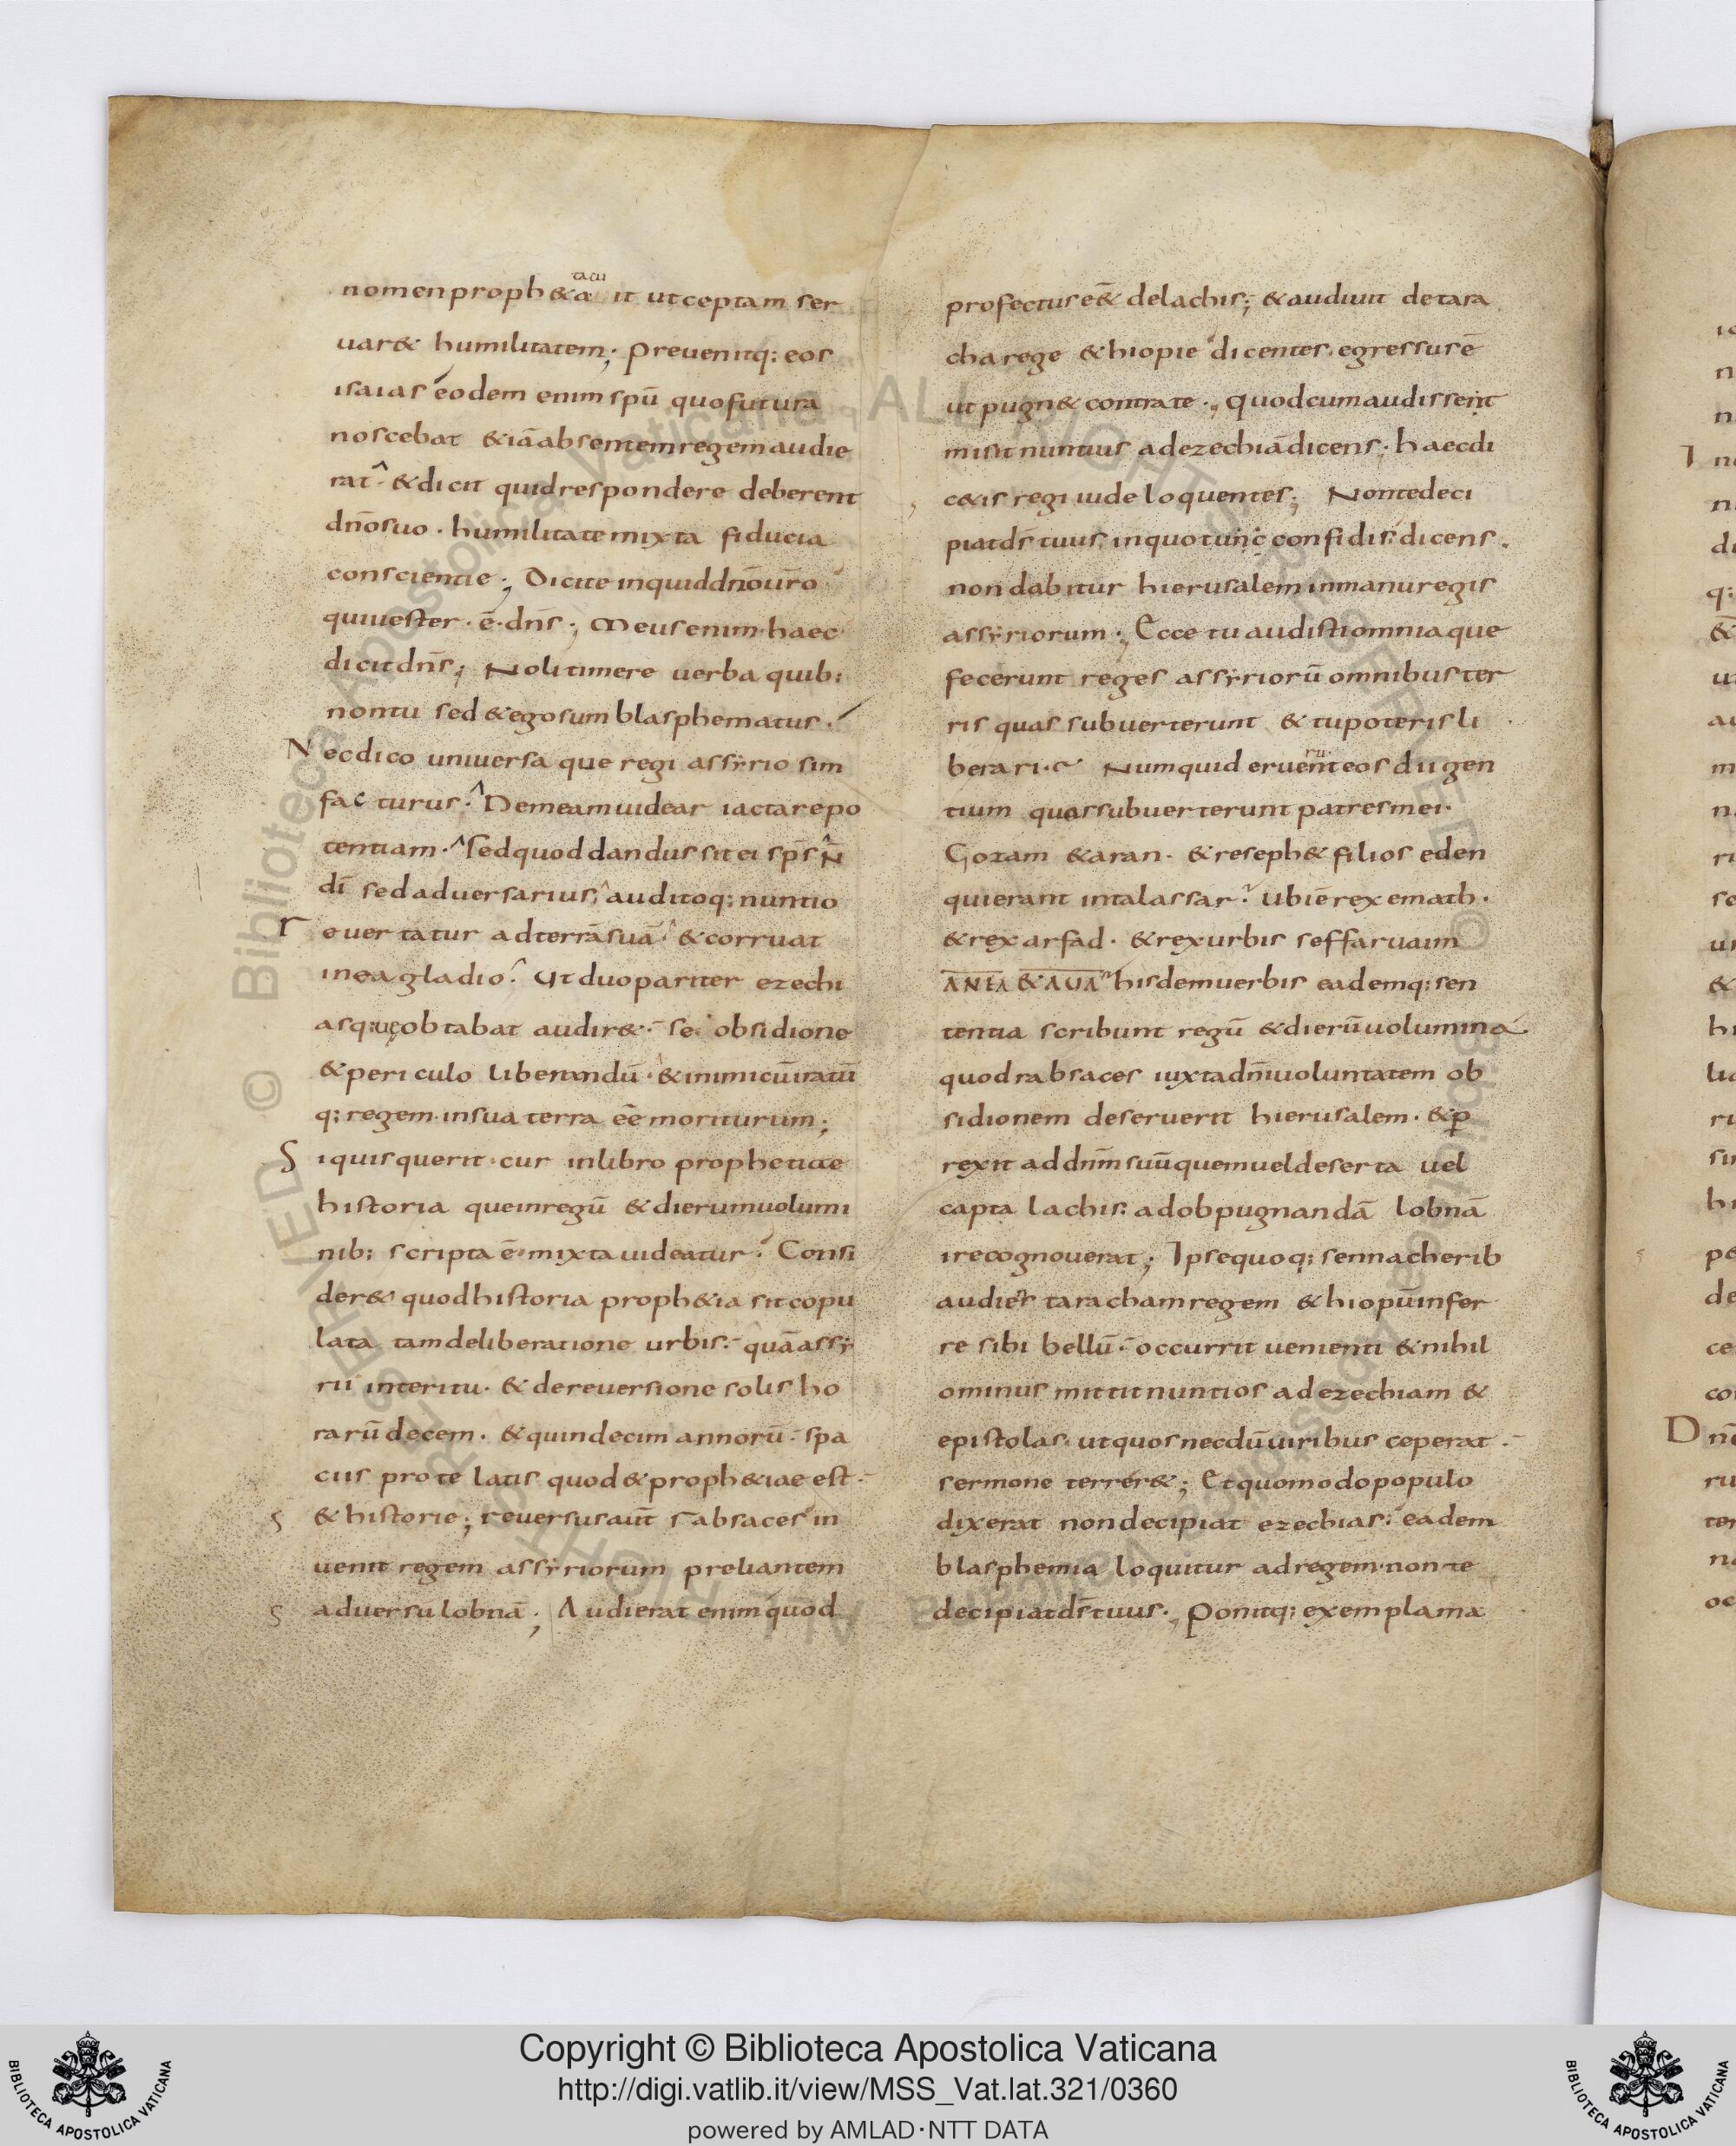 tacu
nomen proph&a it ut ceptam ser
uar& humilitatem; Preuenitq: eos
isaias eodem enim spū quo futura
noscebat & iā absentem regem audie
rat & dicit quid respondere deberent
dn̄o suo · humilitate mixta fiducia
conscientie; Dicite inquid dn̄o ur̄o
qui uester · ē · dn̄s; Meus enim haec
dicit dn̄s; Noli timere uerba quib:
non tu sed & ego sum blasphematus ·
Nec dico uniuersa que regi assyrio sim
facturus · Ne meam uidear iactare po
tentiam · sed quod dandus sit ei sp̄s N̄
dī sed aduersarius; auditoq: nuntio
reuertatur ad terrā suā · & corruat
in ea gladio · Ut duo pariter ezechi
asq: ue obtabat audir& · se obsidione
& periculo liberandū · & inimicū iratū
q: regem · in sua terra eē moriturum;
Si quis querit · cur in libro propheticae
historia que in regū & dierum uolumi
nib: scripta ē · mixta uideatur · Consi
der& quod historia proph&ia sit copu
lata tam de liberatione urbis · quā assy
rii interitu · & de reuersione solis ho
rarū decem · & quindecim annorū · spa
ciis pro te latis quod & proph&iae est ·
& historie; reuersus aūt rabsaces in
uenit regem assyriorum preliantem
aduersu lobnā; Audierat enim quod
profectus eē& de lachis; & audiuit de tara
cha rege &hiopie dicentes egressus ē
ut pugn& contra te · quod cum audissent
misit nuntius ad ezechiā dicens · haec di
c&is regi iude loquentes; Non te deci
piat ds̄ tuus in quo tunc confidis dicens ·
non dabitur hierusalem in manu regis
assyriorum · Ecce tu audisti omnia que
fecerunt reges assyriorū omnibus ter
ris quas subuerterunt & tu poteris li
berari · Numquid eruent eos dii gen
ru
tium quas subuerterunt patres mei ·
Gozam & aran · & reseph & filios eden
qui erant in talassar · Ubi ē rex emath ·
& rex arfad · & rex urbis seffaruaim
ANIA & AUA hisdem uerbis eademq: sen
tentia scribunt regū & dierū uolumina
quod rabsaces iuxta dn̄i uoluntatem ob
sidionem deseruerit hierusalem · & p
rexit ad dnm̄ suū quem uel deserta uel
capta lachis · ad obpugnandā lobnā
ire cognouerat; Ipse quoq: sennacherib
audi& taracham regem &hiopū infer
re sibi bellū · occurrit uenienti & nihil
ominus mittit nuntios ad ezechiam &
epistolas · ut quos necdū uiribus ceperat ·
sermone terrer&; Et quomodo populo
dixerat non decipiat ezechias · eadem
blasphemia loquitur ad regem · non te
decipiat ds̄ tuus · Ponitq: exempla ma
Copyright © Biblioteca Apostolica Vaticana
http://digi.vatlib.it/view/MSS_Vat.lat.321/0360
powered by AMLAD·NTT DATA